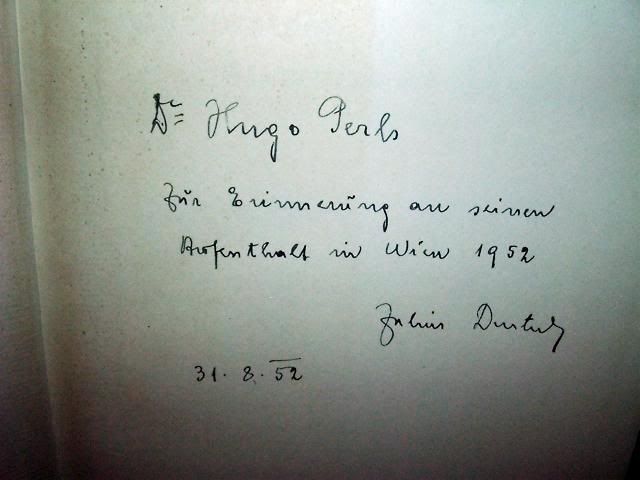 Dr Hugo Perls
Zur Erinnerung an seinen
Aufenthalt in Wien 1952
Julius
31. 8. 52